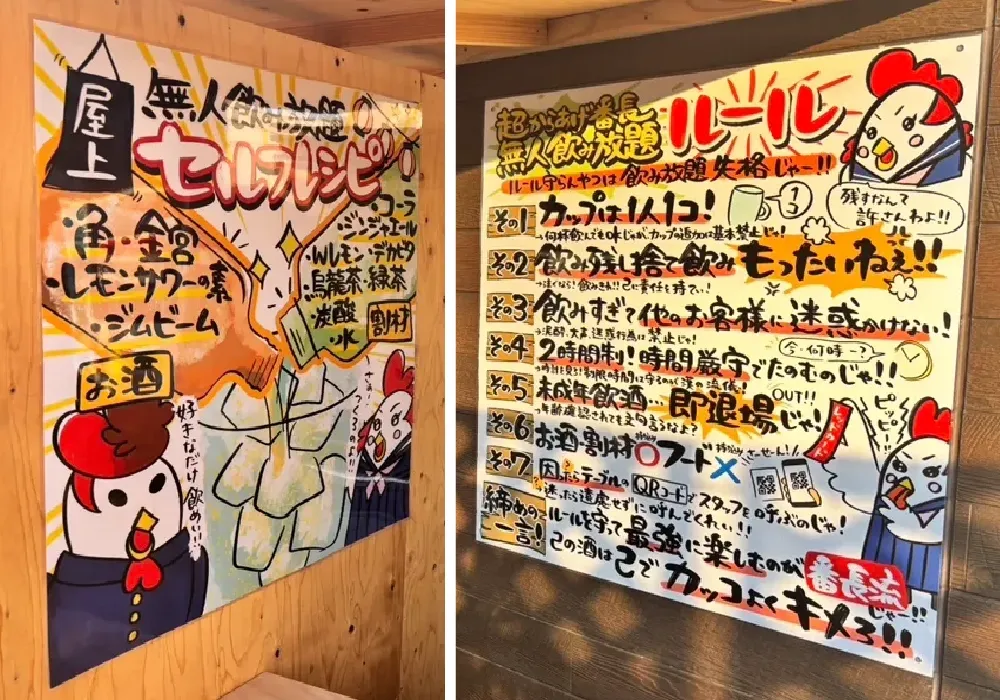 屋上
無人飲み放題
セルフレシピ
・角・金宮
・レモンサワーの素
・ジムビーム
お酒
・コーラ
・ジンジャエール
・Wレモン・デカビタ
・烏龍茶・緑茶
・炭酸
・水
割材
好きなだけ飲めぃ!!
さぁ!
つくるのよ!!
超からあげ番長
無人飲み放題
ルール
ルール守らんやつは飲み放題失格じゃー!!
その1 カップは1人1コ!
→何杯飲んでもOKじゃが、カップの追加は基本禁止じゃ!
残すなんて
許さんわよ!!
その2 飲み残し捨て飲みもったいねぇ!!
その3 飲みすぎて他のお客様に迷惑かけない!
→泥酔、大声、迷惑行為は禁止じゃ!
その4 2時間制!時間厳守でたのむのじゃ!!
今・何時ー?
その5 未成年飲酒…即退場じゃ!
OUT!!
ピッピー!!
その6 お酒・割材○フード×
その7 困ったらテーブルのQRコードでスタッフを呼ぶのじゃ!
迷ったら遠慮せずに呼んどくれい!!
締めの
一言!
ルールを守って最強に楽しむのが番長流じゃー!!
己の酒は己でカッコよくキメろ!!